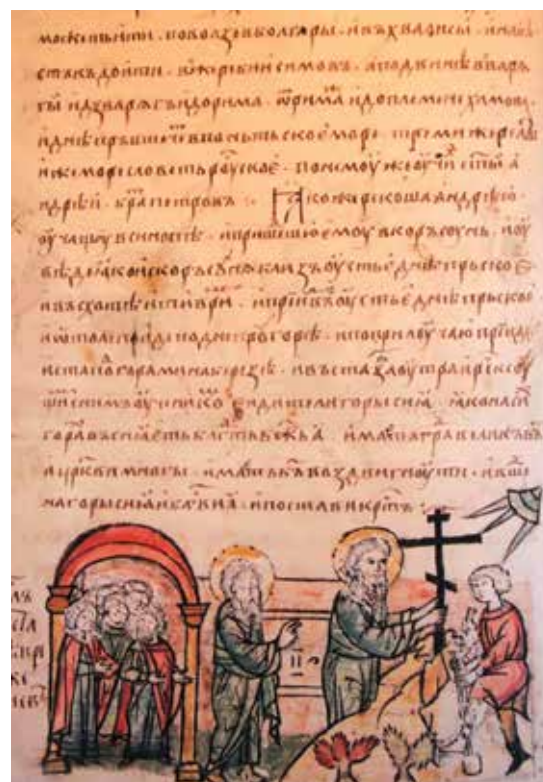 можеть ити . по волзѣ в болгары . и въ хвалисы . и на въ
стокъ доити . в жребии симовъ . а по двинѣ в варѧ
гы и дъ варѧгъ и до рима . ѿ рима и до племени хамова .
и днѣпръ втечеⷮ в поньтьское море . треми жерелы
иже море словеть рꙋское . по немꙋ же ꙋчиⷧ ст҃ыи а
ндрѣи . браⷮ петровъ : Ꙗкоже рекоша андрѣю
ꙋчащꙋ в синопѣ . и пришеⷣшю емꙋ в корьсꙋнь . и ꙋ
вѣдѣ ꙗко ис корьсꙋнѧ близъ ꙋстье днѣпрьское
и въсхотѣ ити в риⷨ . и прииⷣ въ ꙋстье днѣпрьское
и ѿтолѣ поиде по днепрꙋ горѣ . и по прилꙋчаю прииде
и ста поⷣ горами на березѣ . и въставъ заꙋтра и реⷱ к сꙋ
щиⷨ с нимъ ꙋченикоⷨ видите ли горы сиꙗ . ꙗко на сиⷯ
гораⷯ въсиꙗеть блгⷣть бж҃ьꙗ . имаⷮ быти граⷣ великъ
и црк҃ви многы . имаⷮ бг҃ъ въздвигнꙋти . и въшеⷣ
на горы сиꙗ и блⷭви ꙗ . и постави крⷭтъ :